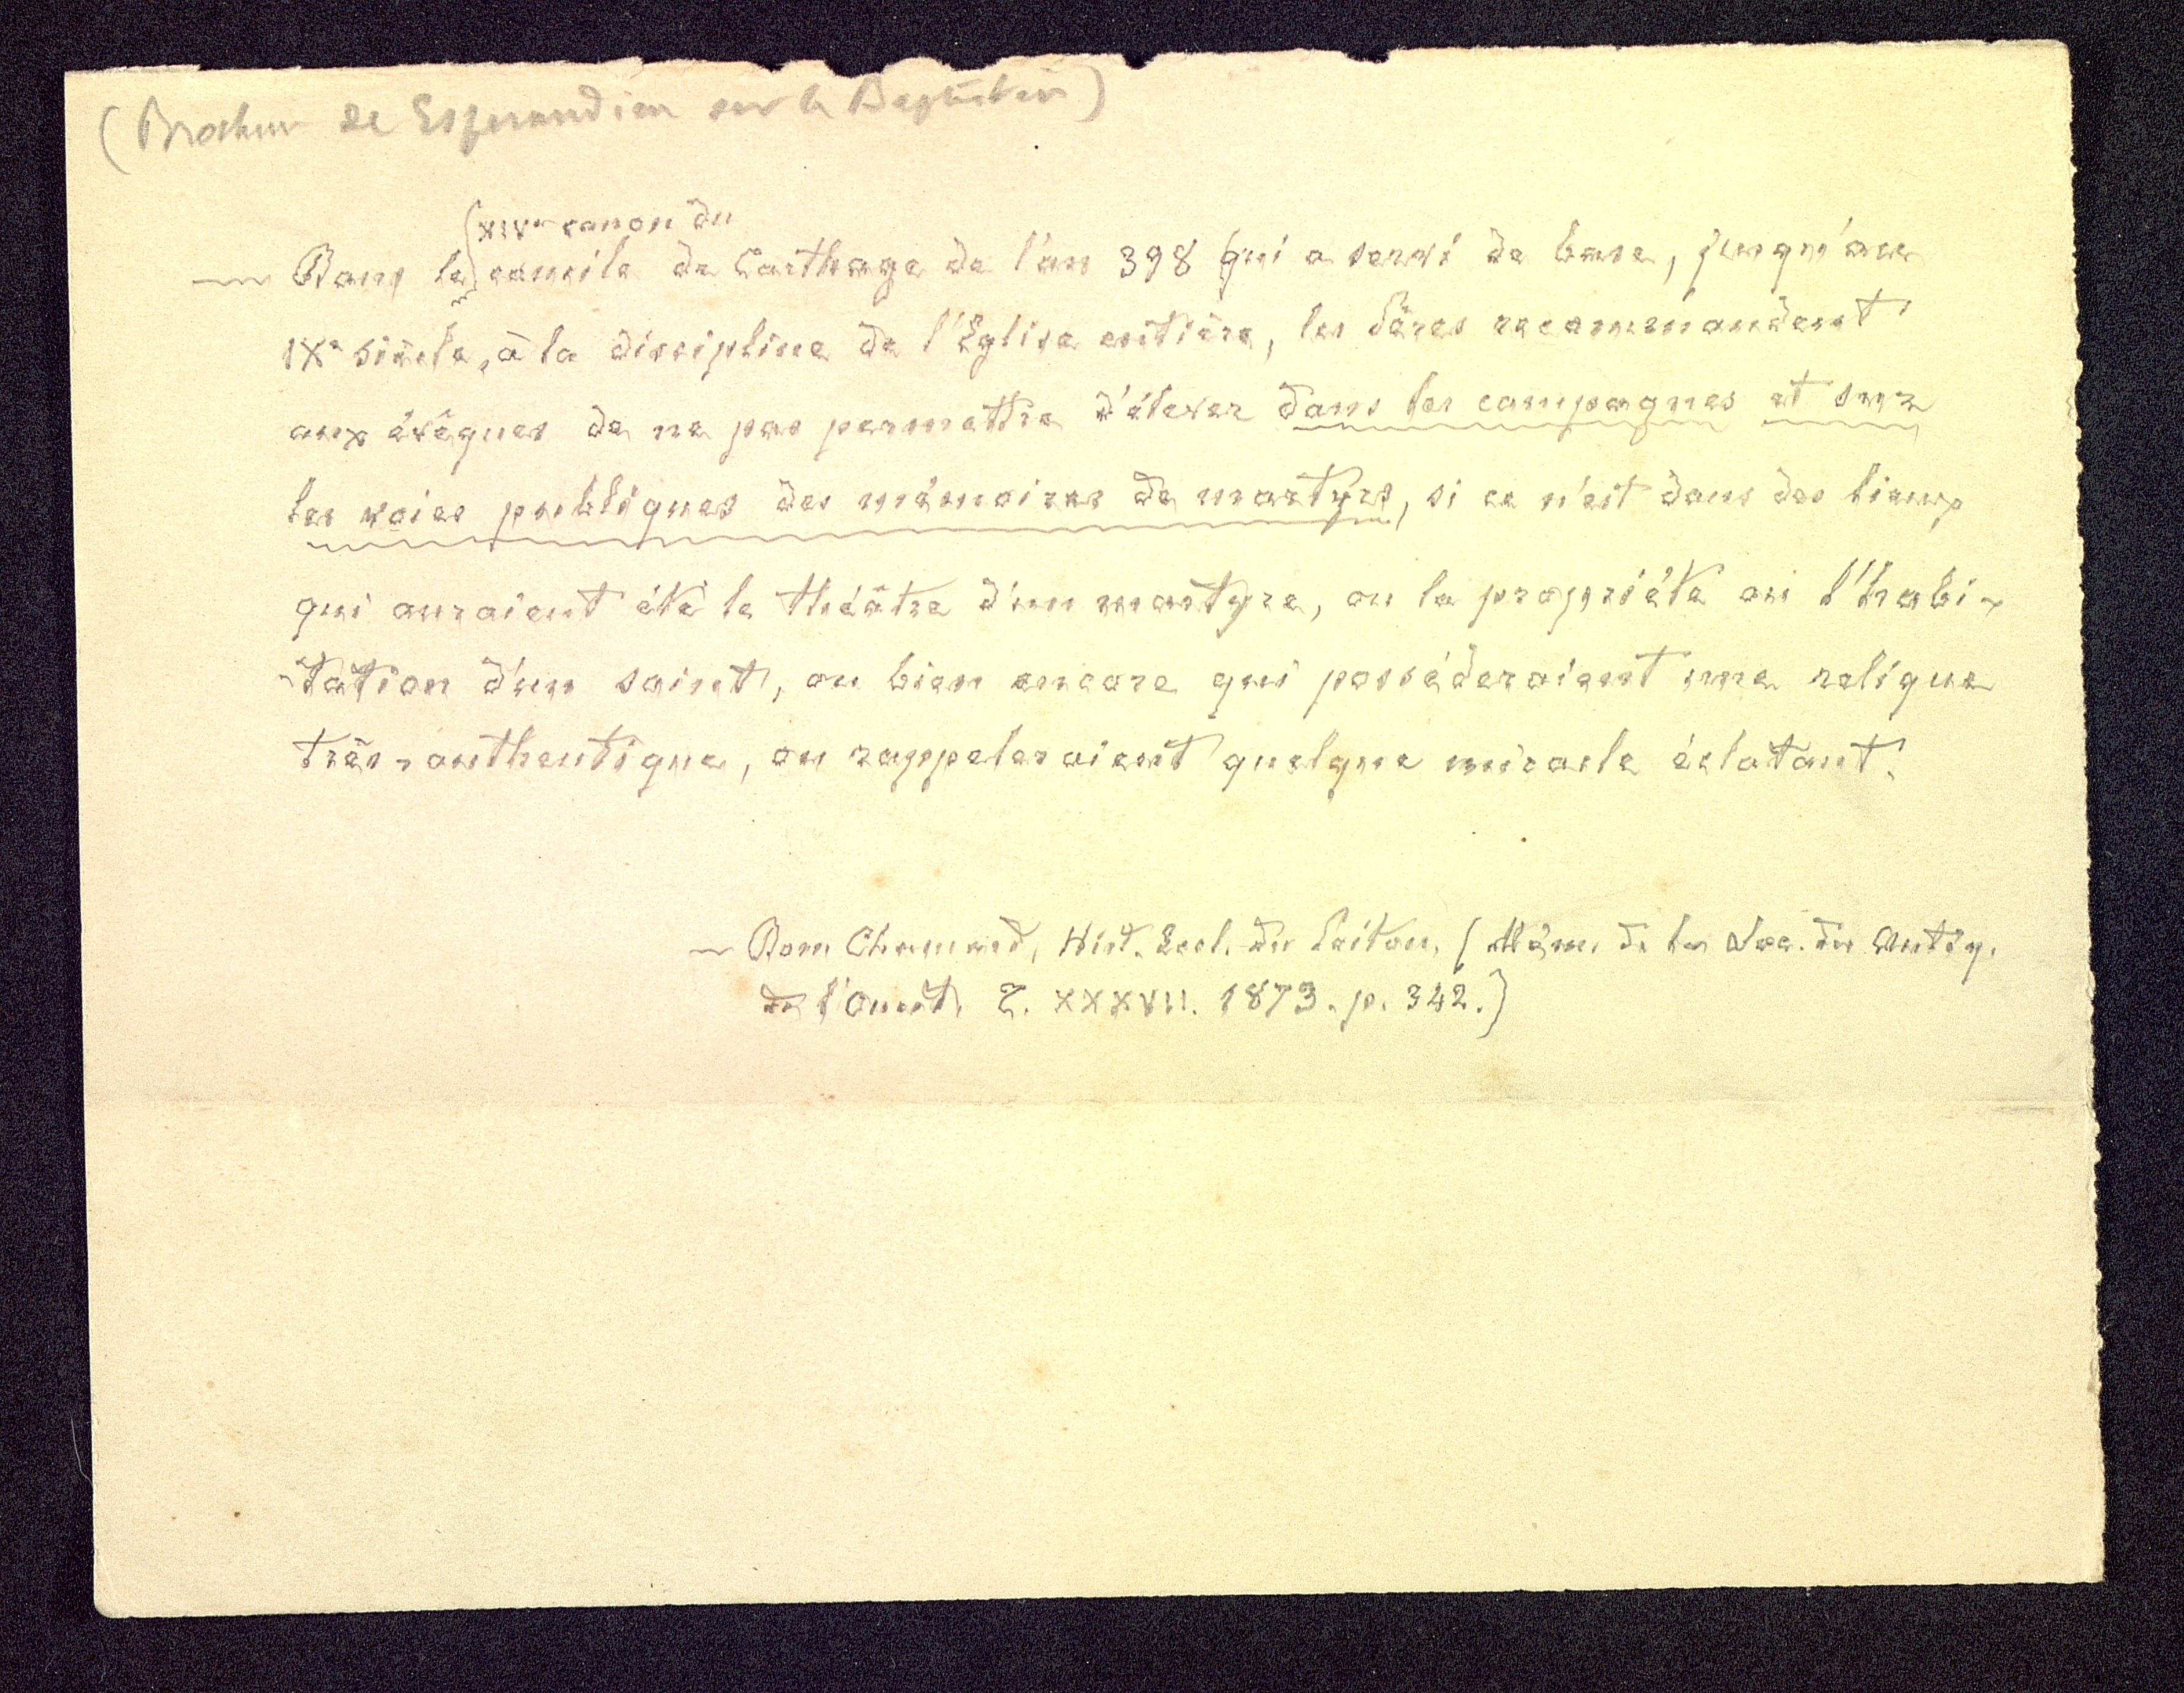 (Brochure de Espérandieu sur le Baptistère)
XIVe canon du
— Dans le concile de Carthage de l'an 398 qui a servi de base, jusqu'au
IXe siècle, à la discipline de l'Église entière, les Pères recommandent
aux évêques de ne pas permettre d'élever dans les campagnes et sur
les voies publiques des mémoires de martyrs, si ce n'est dans des lieux
qui auraient été le théâtre d'un martyre, ou la propriété ou l'habi-
-tation d'un saint, ou bien encore qui posséderaient une relique
très-authentique, ou rappeleraient quelque miracle éclatant.
— Dom Chamard, Hist. Eccl. du Poitou. (Mém. de la Soc. des Antiq.
de l'Ouest. T. XXXVII. 1873. p. 342.)